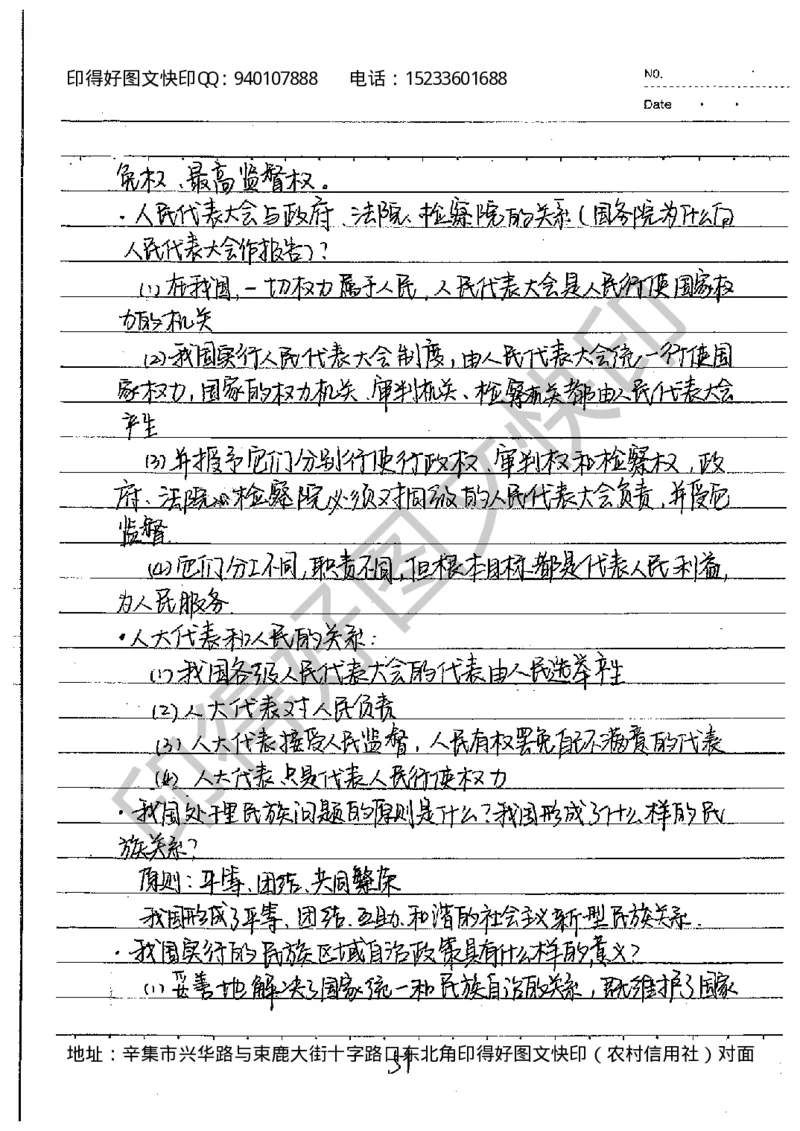 印得好图文快印QQ：940107888 电话：15233601688
NO.
Date
免权、最高监督权。
·人民代表大会与政府、法院、检察院的关系（国务院为什么向
人民代表大会作报告）？
(1)在我国，一切权力属于人民，人民代表大会是人民行使国家权
力的机关
(2)我国实行人民代表大会制度，由人民代表大会统一行使国
家权力，国家的权力机关、审判机关、检察机关都由人民代表大会
产生
(3)并报予它们分别行使行政权、审判权和检察权，政
府、法院、检察院必须对同级的人民代表大会负责，并受它
监督
(4)它们分工不同，职责不同，但根本目标都是代表人民利益，
为人民服务
·人大代表和人民的关系：
(1)我国各级人民代表大会的代表由人民选举产生
(2)人大代表对人民负责
(3)人大代表接受人民监督，人民有权罢免自己不满意的代表
(4)人大代表只是代表人民行使权力
·我国处理民族问题的原则是什么？我国形成了什么样的民
族关系？
原则：平等、团结、共同繁荣
我国形成了平等、团结、互助、和谐的社会主义新型民族关系.
·我国实行的民族区域自治政策具有什么样的意义？
(1)妥善地解决了国家统一和民族自治的关系，既维护了国家
地址：辛集市兴华路与束鹿大街十字路口东北角印得好图文快印（农村信用社）对面
印得好图文快印